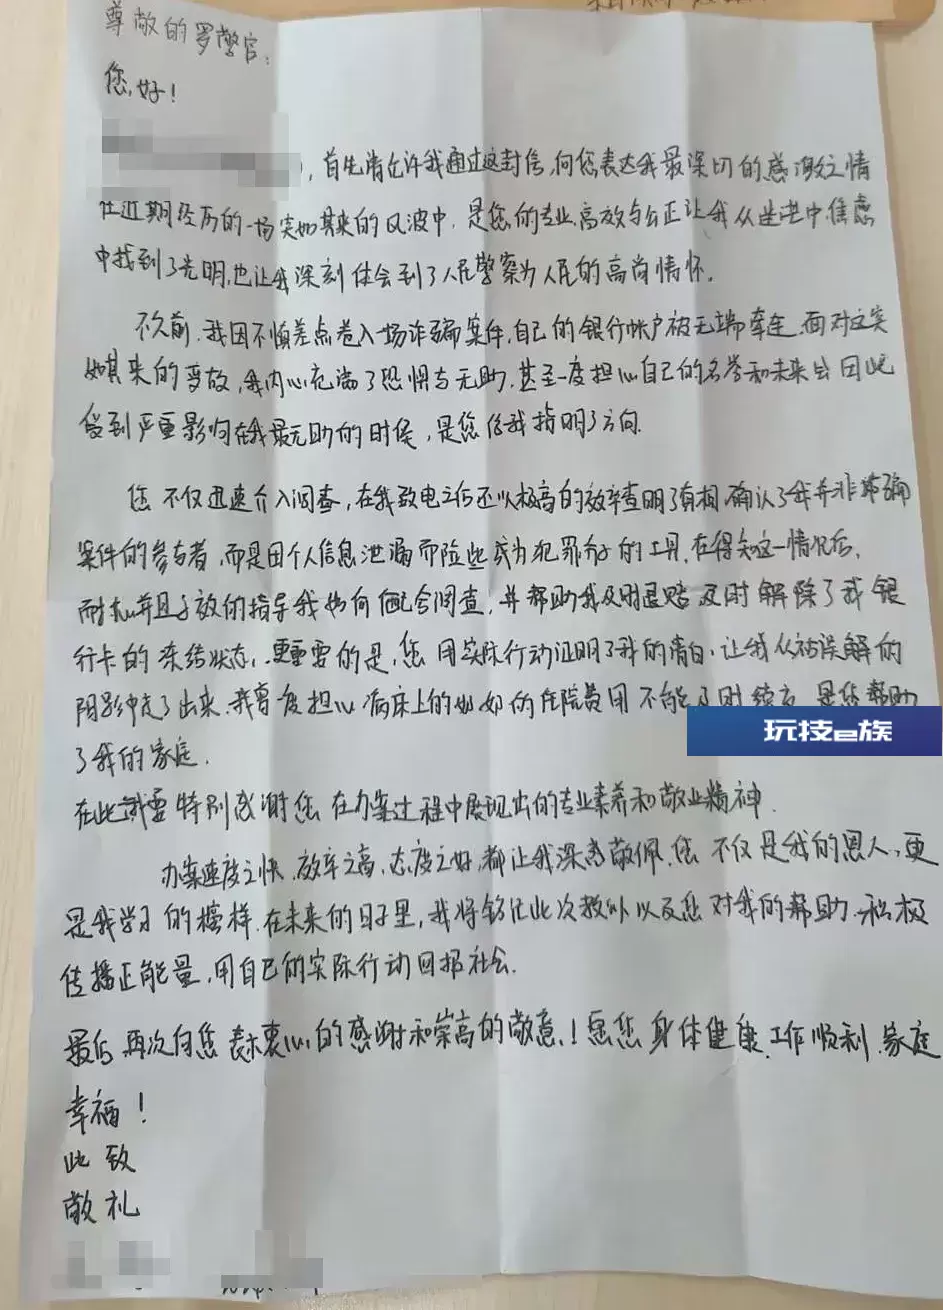 尊敬的罗警官：
您，好！
，首先请允许我通过这封信，向您表达我最深切的感激之情
在近期经历的一场突如其来的风波中，是您的专业、高效与公正让我从迷茫中、焦虑
中找到了光明，也让我深刻体会到了人民警察为人民的高尚情怀。
不久前，我因不慎差点卷入一场诈骗案件，自己的银行帐户被无端牵连，面对这突
如其来的变故，我内心充满了恐惧与无助，甚至一度担心自己的名誉和未来会因此
受到严重影响在我最无助的时候，是您给我指明了方向.
您不仅迅速介入调查，在我致电之后还以极高的效率查明了真相，确认了我并非诈骗
案件的参与者，而是因个人信息泄漏而险些成为犯罪分子的工具，在得知这一情况后，
耐心并且高效的指导我如何配合调查，并帮助我及时退赔及时解除了我银
行卡的冻结状态，更重要的是，您用实际行动证明了我的清白，让我从被误解的
阴影中走了出来，我曾一度担心病床上的奶奶的住院费用不能及时续交，是您帮助
了我的家庭.
在此我要特别感谢您在办案过程中展现出的专业素养和敬业精神.
办案速度之快、效率之高、态度之好，都让我深表敬佩，您不仅是我的恩人，更
是我学习的榜样，在未来的日子里，我将铭记此次教训以及您对我的帮助，积极
传播正能量，用自己的实际行动回报社会.
最后再次向您表示衷心的感谢和崇高的敬意！愿您身体健康、工作顺利、家庭
幸福！
此致
敬礼
玩技e族